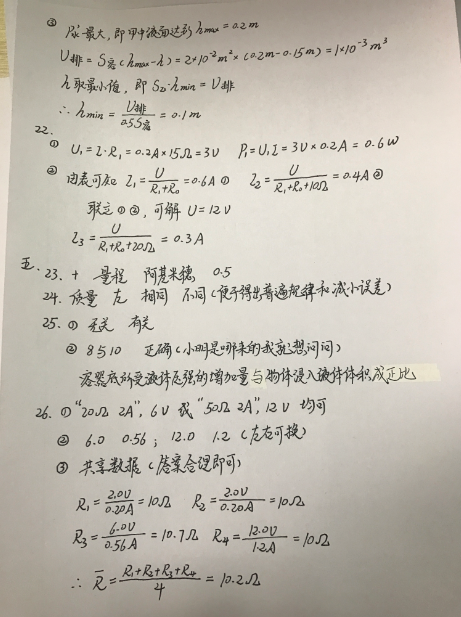 ③ P水最大，即甲中液面达到 hmax = 0.2m
V排 = S容(hmax-h) = 2×10⁻²m²×(0.2m-0.15m) = 1×10⁻³m³
h取最小值，即 S乙·hmin = V排
∴ hmin = V排/0.5S容 = 0.1m
22.
① U₁=I·R₁=0.2A×15Ω=3V P₁=U₁I=3V×0.2A=0.6W
② 由表可知 I₁ = U/(R₁+R₀) = 0.6A ① I₂ = U/(R₁+R₀+10Ω) = 0.4A ②
联立①②，可解 U=12V
I₃ = U/(R₁+R₀+20Ω) = 0.3A
五. 23. + 量程 阿基米德 0.5
24. 质量 左 相同 不同(便于得出普遍规律和减小误差)
25. ① 无关 有关
② 8510 正确(小明是哪来的我就想问问)
容器底所受液体压强的增加量与物体浸入液体体积成正比
26. ① "20Ω 2A", 6V 或 "50Ω 2A", 12V 均可
② 6.0 0.56 ; 12.0 1.2 (左右可换)
③ 共享数据 (答案合理即可)
R₁ = 2.0V/0.20A = 10Ω R₂ = 2.0V/0.20A = 10Ω
R₃ = 6.0V/0.56A = 10.7Ω R₄ = 12.0V/1.2A = 10Ω
∴ R̄ = (R₁+R₂+R₃+R₄)/4 = 10.2Ω